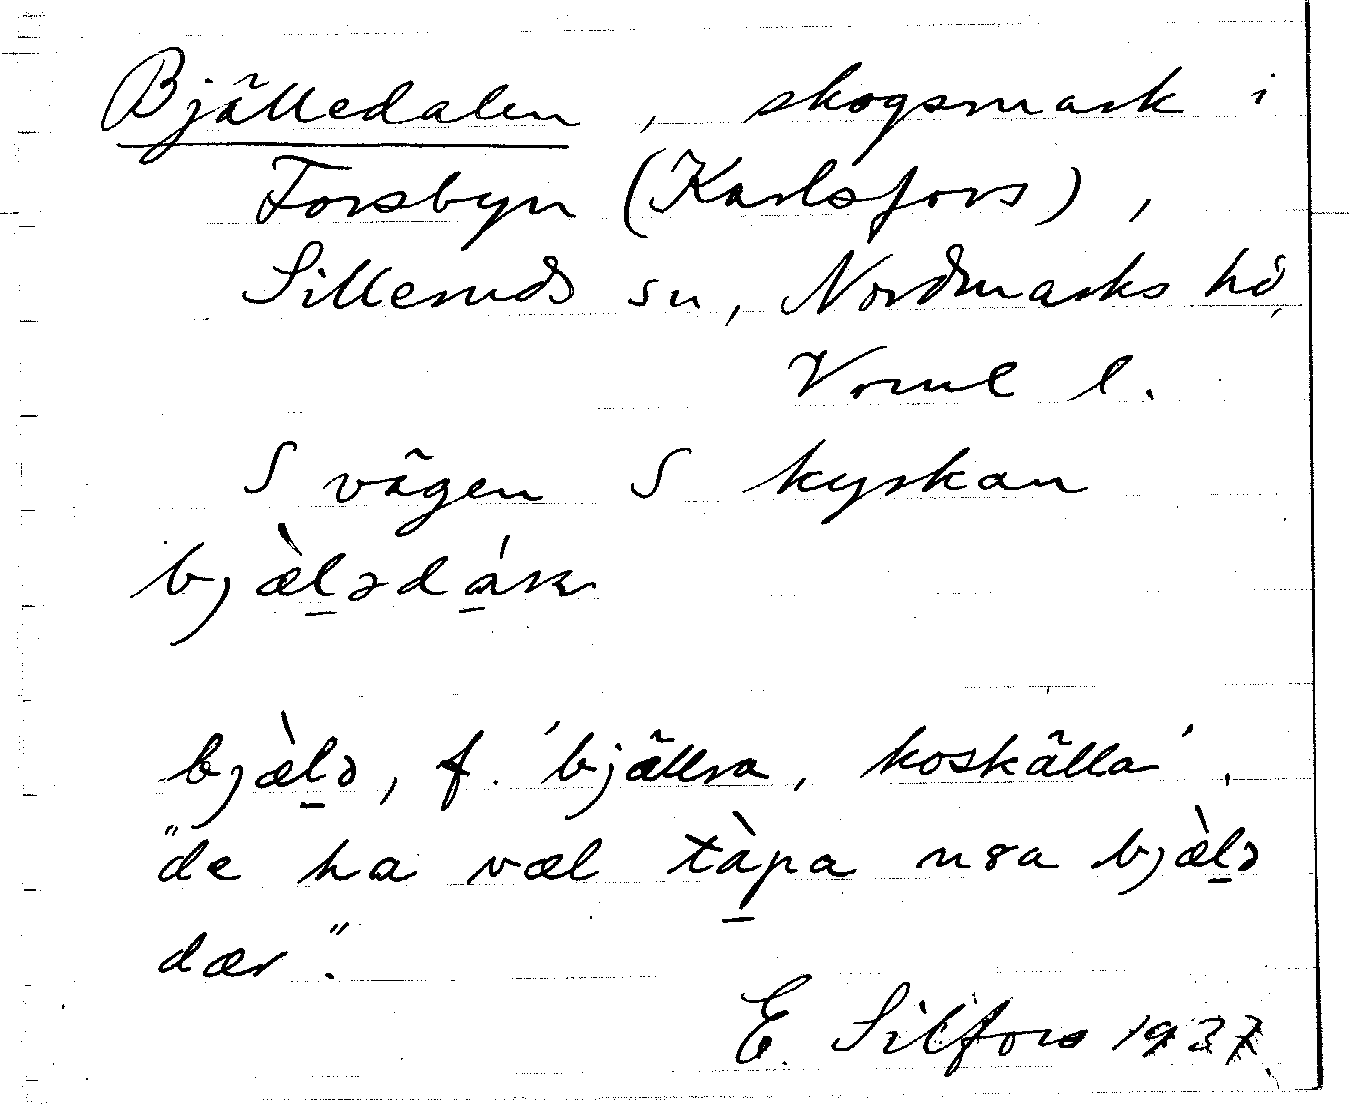 Bjälledalen, skogsmark i
Forsbyn (Karlsfors),
Silleruds sn, Nordmarks hd,
Vrml l.
S vägen S kyrkan
bjæ̀l̲ədá̲rn

bjæ̀l̲ə, f. 'bjällra, koskälla'.
"de ha væl tà̲pa nɤa bjæ̀l̲ə
dær".
E. Silfors 1937